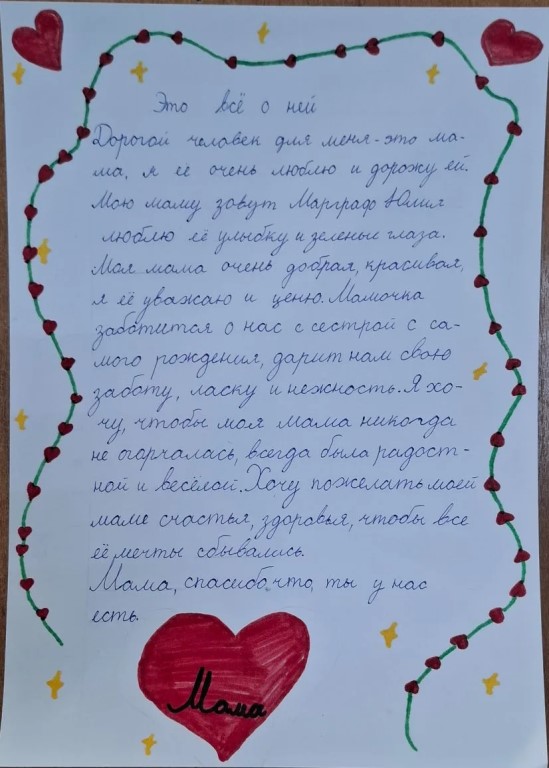 Это всё о ней
Дорогой человек для меня - это ма-
ма, я её очень люблю и дорожу ей.
Мою маму зовут Марграф Юлия
люблю её улыбку и зеленые глаза.
Моя мама очень добрая, красивая,
я её уважаю и ценю. Мамочка
заботится о нас с сестрой с са-
мого рождения, дарит нам свою
заботу, ласку и нежность. Я хо-
чу, чтобы моя мама никогда
не огорчалась, всегда была радост-
ной и весёлой. Хочу пожелать моей
маме счастья, здоровья, чтобы все
её мечты сбывались.
Мама, спасибо, что, ты у нас
есть.
Мама